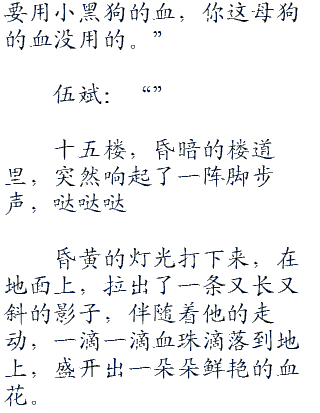 要用小黑狗的血，你这母狗
的血没用的。”
伍斌：“”
十五楼，昏暗的楼道
里，突然响起了一阵脚步
声，哒哒哒
昏黄的灯光打下来，在
地面上，拉出了一条又长又
斜的影子，伴随着他的走
动，一滴一滴血珠滴落到地
上，盛开出一朵朵鲜艳的血
花。